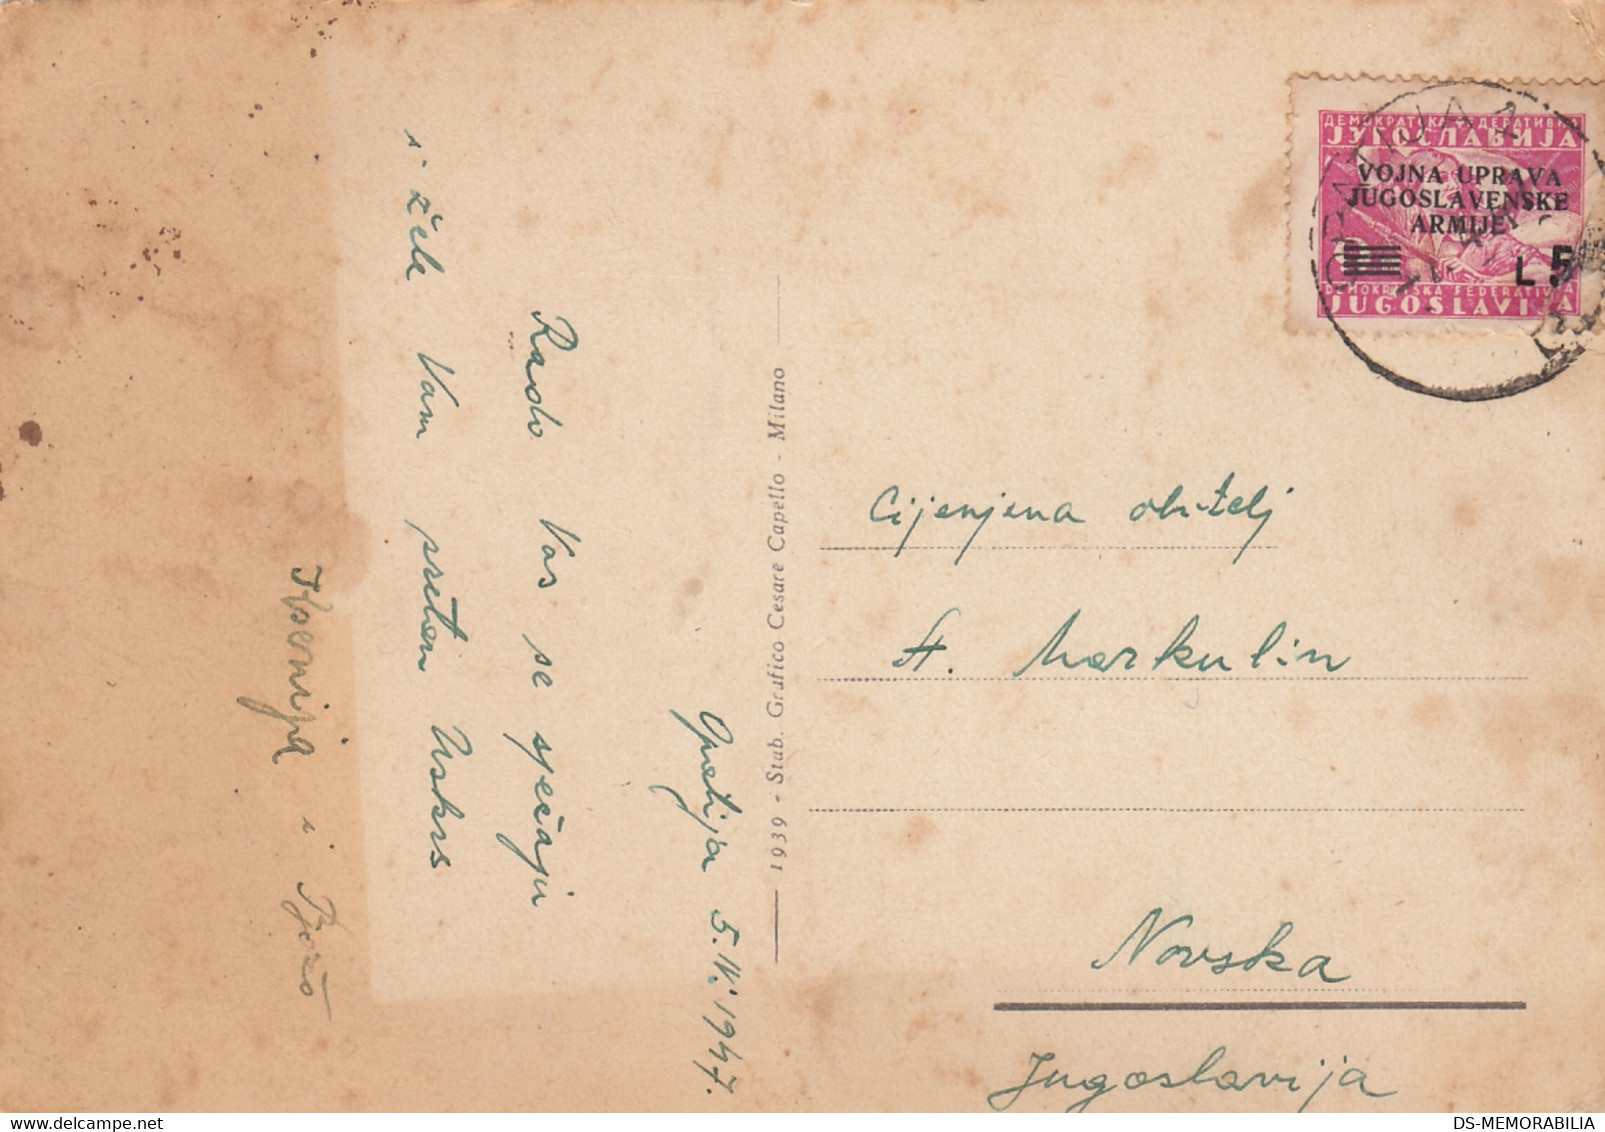 Opatija 5.IV.1947.
Rado Vas se sjećaju
i žele Vam sretan Uskrs
Ksenija i Božo
1939 - Stab. Grafico Cesare Capello - Milano
ДЕМОКРАТСКА ФЕДЕРАТИВНА
ЈУГОСЛАВИЈА
VOJNA UPRAVA
JUGOSLAVENSKE
ARMIJE
L 5
DEMOKRATSKA FEDERATIVNA
JUGOSLAVIJA
Cijenjena obitelj
A. Markulin
Novska
Jugoslavija
DS-MEMORABILIA